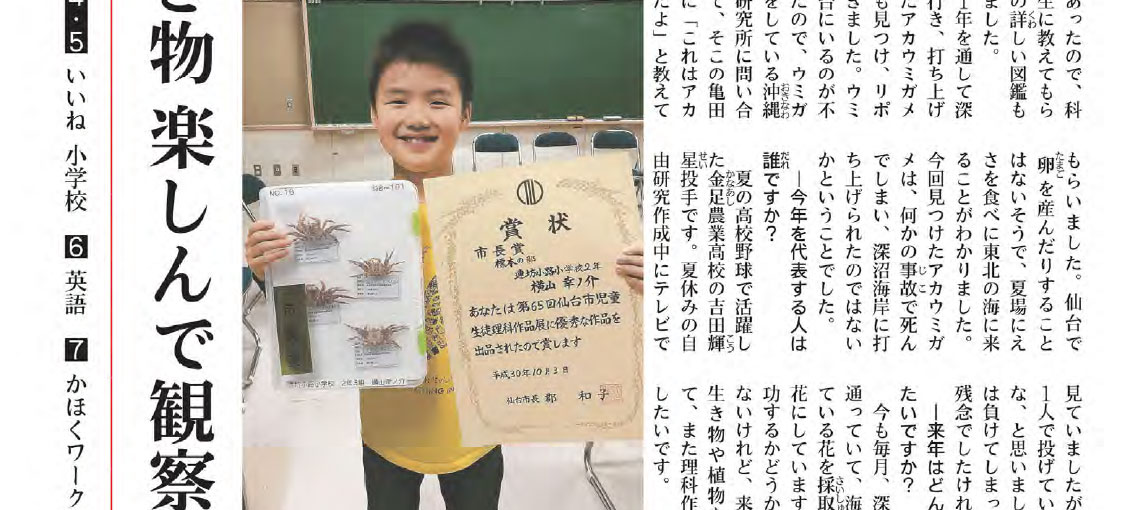 あったので、科
生に教えてもら
の詳しい図鑑も
ました。
1年を通して深
行き、打ち上げ
たアカウミガメ
も見つけ、リポ
きました。ウミ
台にいるのが不
たので、ウミガ
をしている沖縄
研究所に問い合
て、そこの亀田
に「これはアカ
たよ」と教えて
もらいました。仙台で
卵を産んだりすること
はないそうで、夏場にえ
さを食べに東北の海に来
ることがわかりました。
今回見つけたアカウミガ
メは、何かの事故で死ん
でしまい、深沼海岸に打
ち上げられたのではない
かということでした。
―今年を代表する人は
誰ですか？
夏の高校野球で活躍し
た金足農業高校の吉田輝
星投手です。夏休みの自
由研究作成中にテレビで
見ていましたが
1人で投げてい
な、と思いまし
は負けてしまっ
残念でしたけれ
―来年はどん
たいですか？
今も毎月、深
通っていて、海
ている花を採取
花にしています
功するかどうか
ないけれど、来
生き物や植物
て、また理科作
したいです。
賞状
市長賞
標本の部
連坊小路小学校2年
横山 幸ノ介
あなたは第65回仙台市児童
生徒理科作品展に優秀な作品を
出品されたので賞します
平成30年10月3日
仙台市長 郡 和子
物 楽しんで観察
4・5 いいね 小学校 6 英語 7 かほくワーク